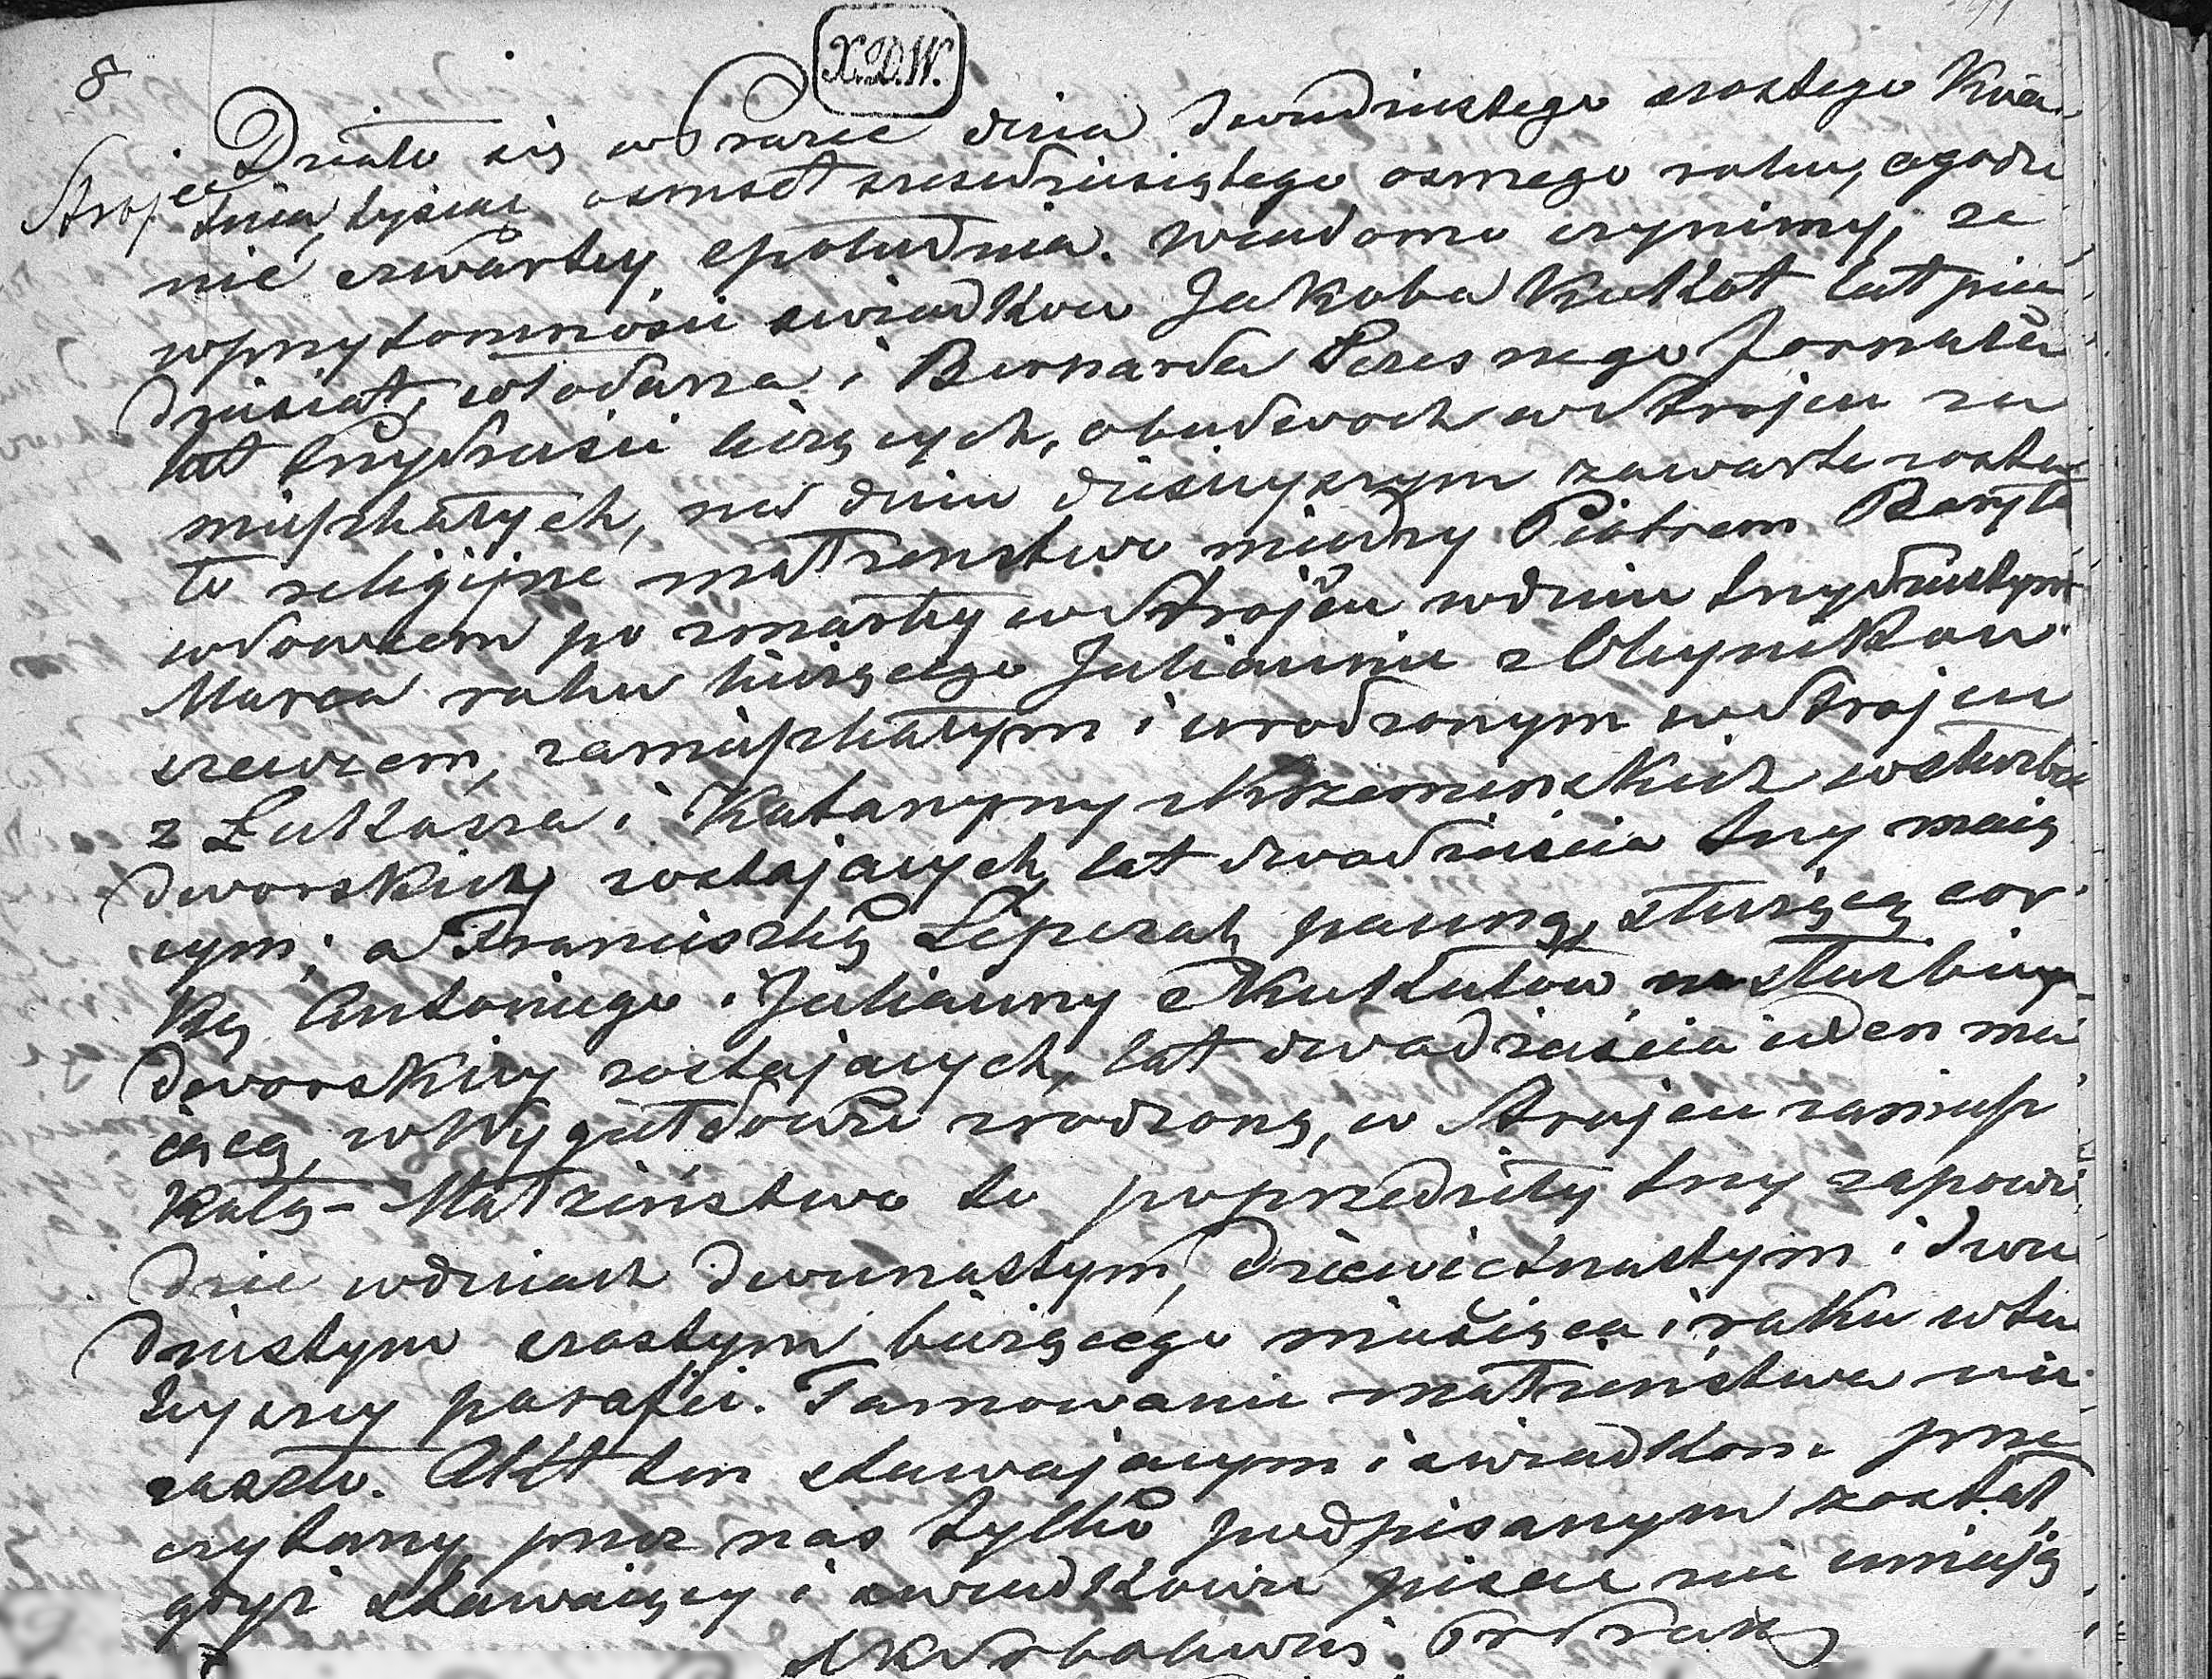 8
X.D.W.
Stroiec
Działo się w Praszce dnia dwudziestego szostego Kwie
tnia, tysiąc osmset szesćdziesiątego osmego roku, o godzi
nie czwartey z południa. Wiadomo czynimy, że
w przytomności swiadkow Jakoba Kukuł lat pięć
dziesiąt, włodarza i Bernarda Szczesnego Fornala
lat trzydzieści liczących, obudwoch w Stroicu za
mieszkałych, na dniu dzisieyszym zawarte zosta
ło religijne małżenstwo między Piotrem Baryła
wdowcem po zmarłey w Stroicu w dniu trzydziestym
Marca roku bieżącego Juliannie z Oleynikow
szewcem, zamieszkałym i urodzonym w Stroicu
z Łukasza i Katarzyny w służbie
dworskiey zostających, lat dwadzieścia trzy maią
cym; a Franciszką Ślipczak panną, służącą cor
ką Antoniego i Julianny w służbie
dworskiey zostających, lat dwadzieścia ieden ma
iącą, w Wygiełdowie zrodzoną, w Stroicu zamiesz
kałą – Małżeństwo to poprzedziły trzy zapowie
dzie w dniach dwunastym, dziewiętnastym i dwu
dziestym szostym bieżącego miesiąca i roku w tu
teyszey parafii. Tamowanie małżeństwa nie
zaszło. Akt ten stawającym i swiadkom prze
czytany, przez nas tylko podpisanym został,
gdyż stawaiący i swiadkowie pisać nie umieją